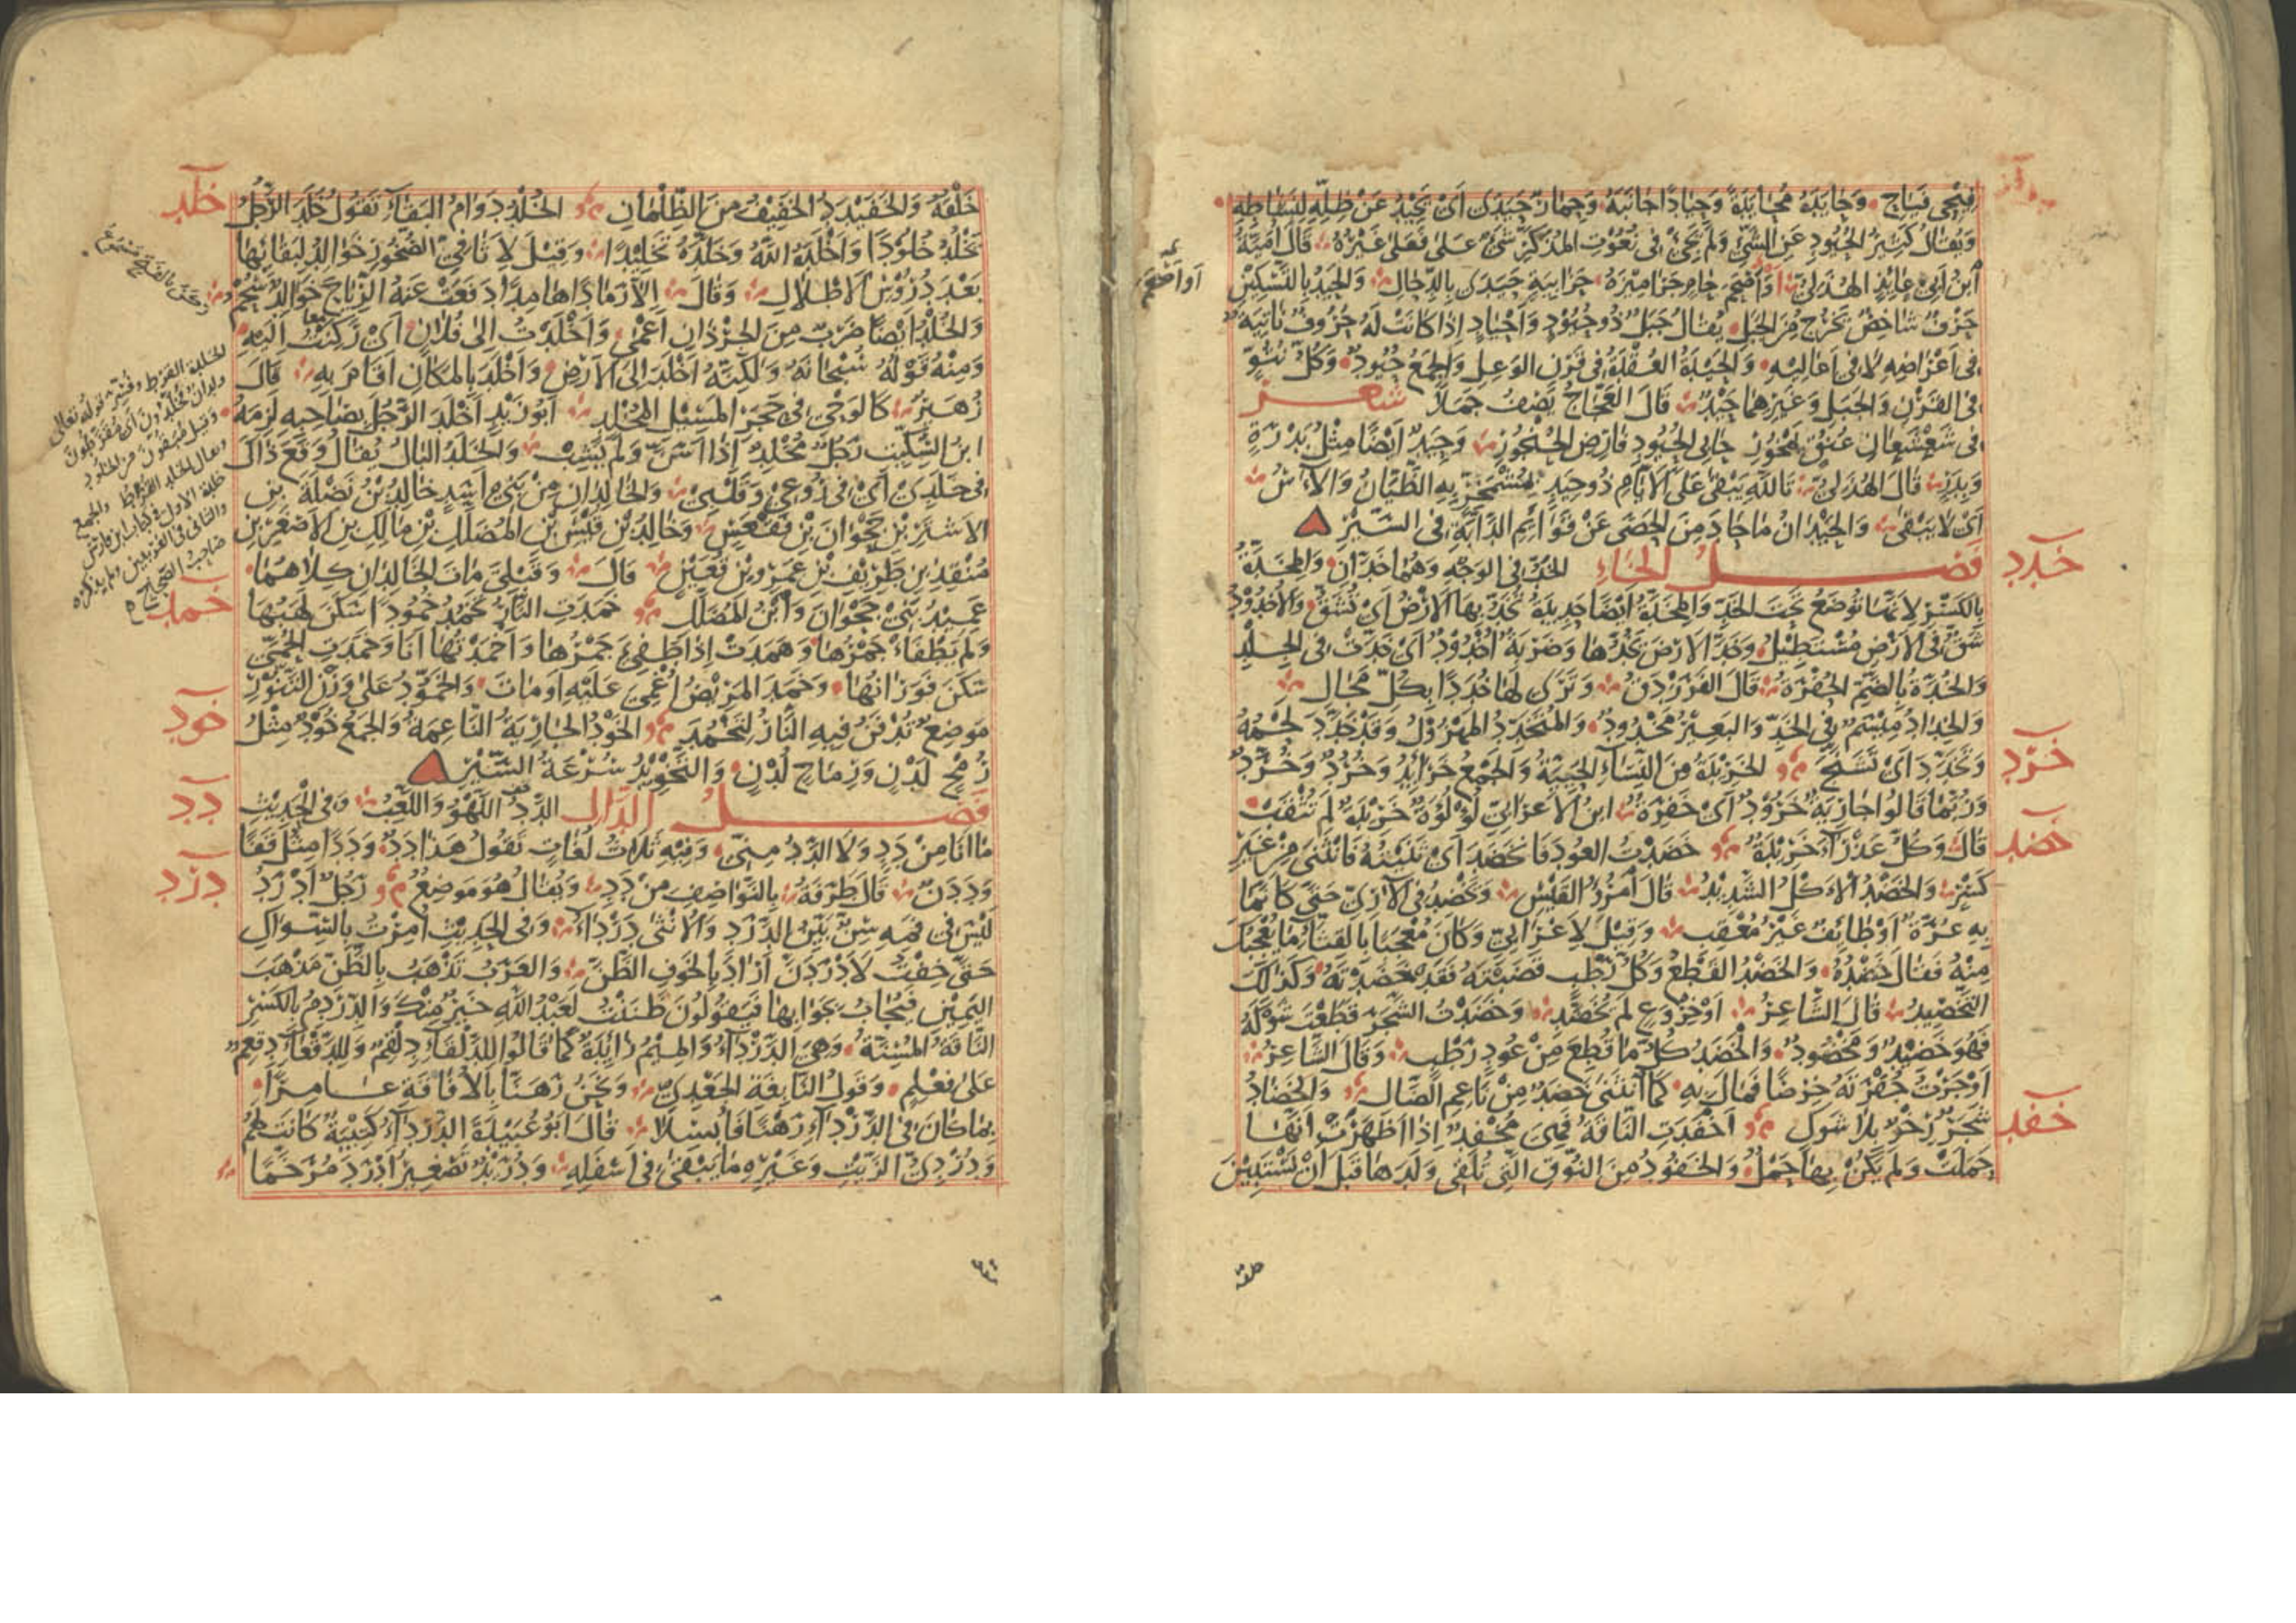 فيحي فياح وحايده محايدة وحيادا جانبه وحمار حيدى اى يحيد عن ظله لنشاطه
ويقال كثير الحيود عن الشئ ولم يجئ فى نعوت المذكر شئ على فعلى غيره قال امية
ابن ابى عايذ الهذلى او اصحم حام جراميزه حزابية حيدى بالدحال والحيد بالتسكين
حرف شاخص يخرج من الجبل يقال جبل ذو حيود واحياد اذا كانت له حروف ناتية
فى اعراضه لا فى اعاليه والحيدة العقدة فى قرن الوعل والجمع حيود وكل نتو
فى القرن والجبل وغيرهما حيد قال العجاج يصف جملا شعر
فى شعشعان عنق يمخور حابى الحيود فارض الحنجور وحيد ايضا مثل بدرة
وبدر قال الهذلى تالله يبقى على الايام ذو حيد بمشمخر به الظيان والاس
اى لا يبقى والحيدان ما حاد من الحصى عن قوائم الدابة فى السير
فصل الخاء الخد فى الوجه وهما خدان والمخدة
بالكسر لانها توضع تحت الخد والمخدة ايضا حديدة تخد بها الارض اى تشق والاخدود
شق فى الارض مستطيل وخد الارض يخدها وضربة اخدود اى خدت فى الجلد
والخدة بالضم الحفرة قال الفرزدق وترى لها خددا بكل مجال
والخداد ميسم فى الخد والبعير مخدود والمتخدد المهزول وقد خدد لحمه
وتخدد اى تشنج الخريدة من النساء الحيية والجمع خرائد وخرد وخرد
وربما قالوا جارية خرود اى خفرة ابن الاعرابى لؤلؤة خريدة لم تثقب
قال وكل عذراء خريدة خضدت العود فانخضد اى ثنيته فانثنى من غير
كسر والخضد الاكل الشديد قال امرؤ القيس ويخضد فى الارى حتى كانما
به عرة او طائف غير معقب وقيل لاعرابى وكان معجبا بالقثاء ما يعجبك
منه فقال خضده والخضد القطع وكل رطب قضبته فقد خضدته وكذلك
التخضيد قال الشاعر او خروع لم يخضد وخضدت الشجر قطعت شوكه
فهو خضيد ومخضود والخضد كل ما قطع من عود رطب وقال الشاعر
اوجرت حفرته حرصا فمال به كما انثنى خضد من ناعم الضال والخضاد
شجر رخو بلا شوك اخفدت الناقة فهى مخفد اذا اظهرت انها
حملت ولم يكن بها حمل والخفود من النوق التى تلقى ولدها قبل ان يستبين
او اصحم
خدد
خرد
خضد
خفد
خلقه
خلقه والخفيدد الخفيف من الظلمان الخلد دوام البقاء تقول خلد الرجل
يخلد خلودا واخلده الله وخلده تخليدا وقيل لاثافى الصخور خوالد لبقائها
بعد دروس الاطلال وقال الا رمادا هامدا دفعت عنه الرياح خوالد سحم
والخلد ايضا ضرب من الجرذان اعمى واخلدت الى فلان اى ركنت اليه
ومنه قوله سبحانه ولكنه اخلد الى الارض واخلد بالمكان اقام به قال
زهير كالوحى فى حجر المسيل المخلد ابو زيد اخلد الرجل بصاحبه لزمه
ابن السكيت رجل مخلد اذا اسن ولم يشب والخلد البال يقال وقع ذاك
فى خلدى اى فى روعى وقلبى والخالدان من بنى اسد خالد بن نضلة بن
الاشتر بن جحوان بن فقعس وخالد بن قيس بن المضلل بن مالك بن الاصغر بن
منقذ بن طريف بن عمرو بن قعين قال وقبلى مات الخالدان كلاهما
عميد بنى جحوان وابن المضلل خمدت النار تخمد خمودا سكن لهبها
ولم يطفاء جمرها وهمدت اذا طفئ جمرها واخمدتها انا وخمدت الحمى
سكن فورانها وخمد المريض اغمى عليه او مات والخمود على وزن التنور
موضع تدفن فيه النار لتخمد الخود الجارية الناعمة والجمع خود مثل
رمح لدن ورماح لدن والتخويد سرعة السير
فصل الدال الدد اللهو واللعب وفى الحديث
ما انا من دد ولا الدد منى وفيه ثلاث لغات تقول هذا دد وددا مثل قفا
وددن قال طرفة بالنواصف من دد ويقال هو موضع رجل ادرد
ليس فى فمه سن بين الدرد والانثى درداء وفى الحديث امرت بالسواك
حتى خفت لادردن اراد بالخوف الظن والعرب تذهب بالظن مذهب
اليمين فيجاب بجوابها فيقولون ظننت لعبد الله خير منك والدردم بالكسر
الناقة المسنة وهى الدرداء والميم زائدة كما قالوا للدلقاء دلقم وللدقعاء دقعم
على فعلم وقول النابغة الجعدى ونحن رهنا بالافاقة عامرا
بما كان فى الدرداء رهنا فابسلا قال ابو عبيدة الدرداء كتيبة كانت لهم
ودردى الزيت وغيره ما يبقى فى اسفله ودريد تصغير ادرد مرخما
خلد
خمد
خود
دد
درد
الخلدة القرط وفسر قوله تعالى
ولدان مخلدون اى مقرطون
وقيل مبقون من الخلود